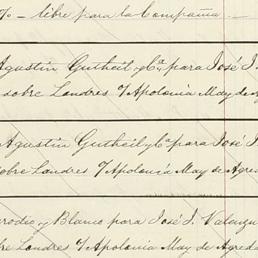 % - libre para la Compañia -
Agustin Gutheil y Cª para José J.
sobre Londres o/ Apolonia May. de
Agustin Gutheil y Cª para José J.
sobre Londres o/ Apolonia May. de Agreda
rodio y Blanco para José J. Valenzu
bre Londres o/ Apolonia May. de Agreda